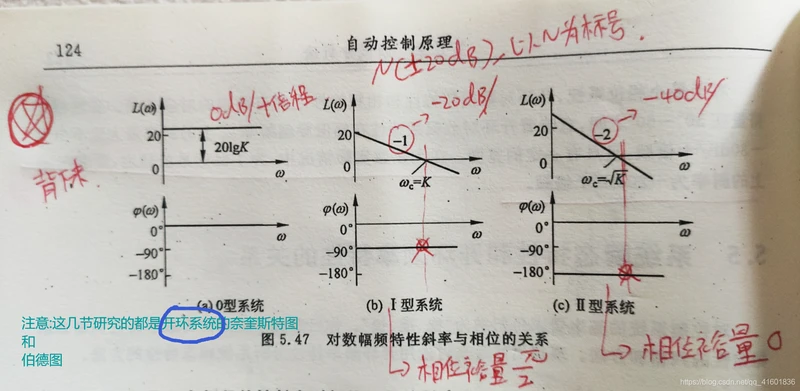 124
自动控制原理
N(±20dB), 以N为标号.
L(ω)
20
0
20lgK
ω
0dB/十倍程
背下来
L(ω)
20
0
-1
-20dB/
ω
ωc=K
L(ω)
20
0
-2
-40dB/
ω
ωc=√K
φ(ω)
0°
-90°
-180°
ω
φ(ω)
0°
-90°
-180°
ω
φ(ω)
0°
-90°
-180°
ω
(a) 0型系统
(b) Ⅰ型系统
(c) Ⅱ型系统
注意:这几节研究的都是开环系统的奈奎斯特图
和
伯德图
图 5.47 对数幅频特性斜率与相位的关系
相位裕量 π/2
相位裕量 0
https://blog.csdn.net/qq_41601836